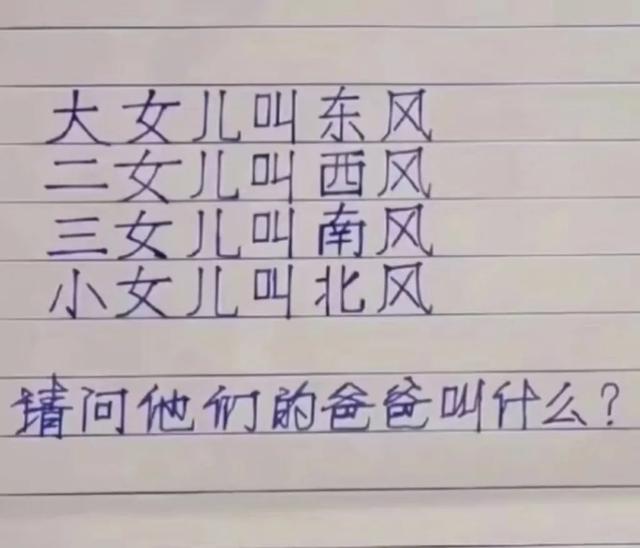 大女儿叫东风
二女儿叫西风
三女儿叫南风
小女儿叫北风
请问他们的爸爸叫什么？